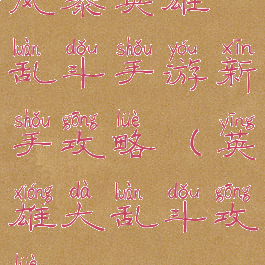 风暴英雄
luàn dǒu shǒu yóu xīn
乱斗手游新
shǒu gōng luè yīng
手攻略（英
xióng dà luàn dǒu gōng
雄大乱斗攻
luè